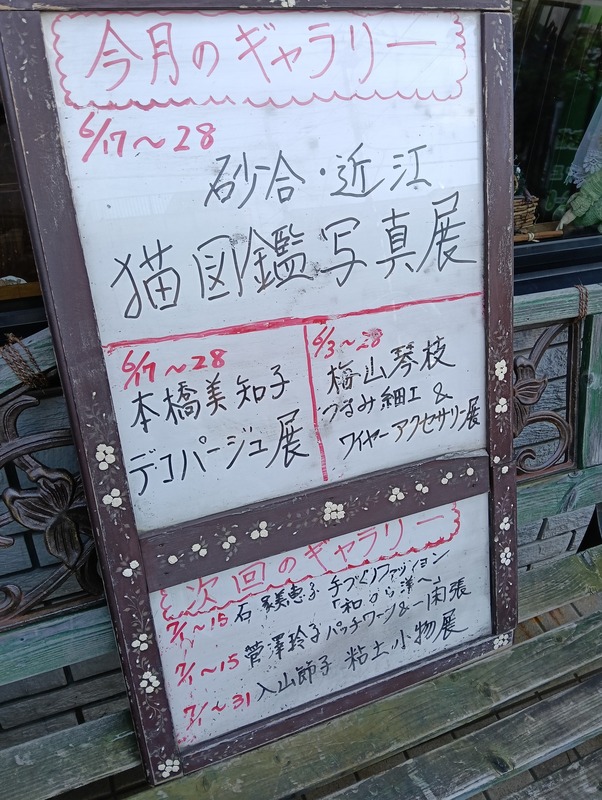 今月のギャラリー
6/17～28
砂合・近江
猫図鑑写真展
6/17～28
本橋美知子
デコパージュ展
6/3～28
梅山琴枝
つるみ細工&
ワイヤーアクセサリー展
次回のギャラリー
7/1～15 石 美恵子 手づくりファッション
「和から洋へ」
7/1～15 菅澤玲子 パッチワーク&一閑張
7/1～31 入山節子 粘土小物展